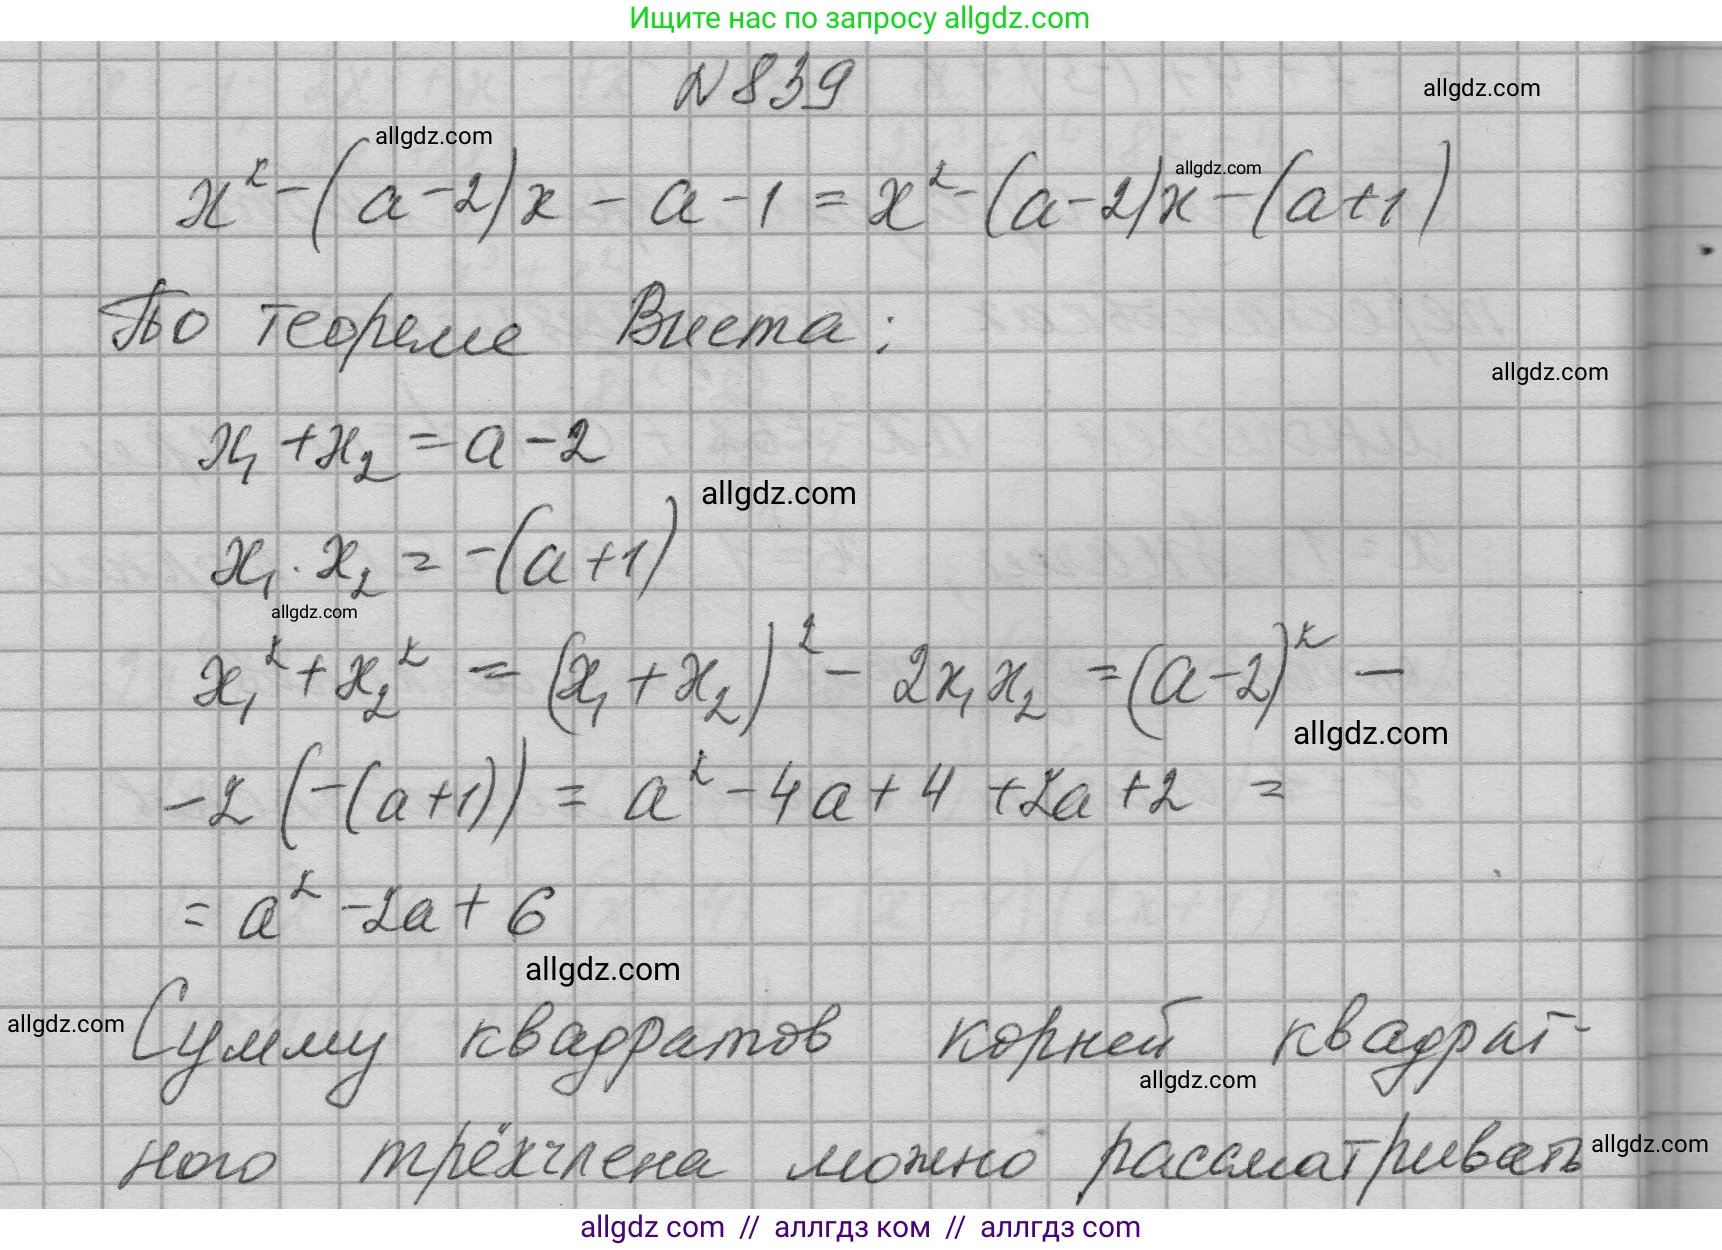 Ищите нас по запросу allgdz.com
N839
allgdz.com
allgdz.com
allgdz.com
x² - (a - 2)x - a - 1 = x² - (a - 2)x - (a + 1)
По теореме Виета:
allgdz.com
x₁ + x₂ = a - 2
allgdz.com
x₁ · x₂ = -(a + 1)
allgdz.com
x₁² + x₂² = (x₁ + x₂)² - 2x₁x₂ = (a - 2)² -
allgdz.com
- 2(-(a + 1)) = a² - 4a + 4 + 2a + 2 =
= a² - 2a + 6
allgdz.com
allgdz.com
Сумму квадратов корней квадрат-
allgdz.com
ного трёхчлена можно рассматривать
allgdz.com
allgdz com // аллгдз ком // аллгдз.com